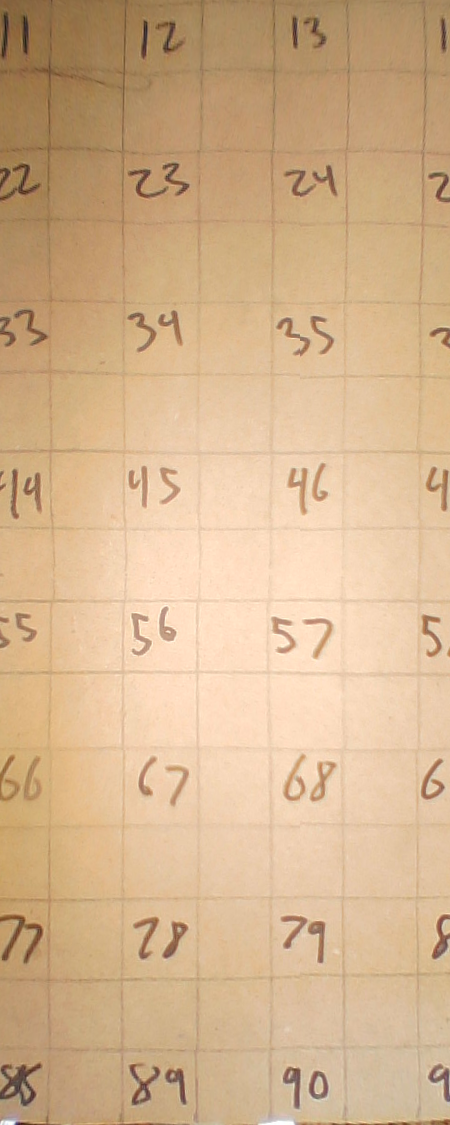 11 12 13 1
22 23 24 2
33 34 35
44 45 46 4
55 56 57 5
66 67 68 6
77 78 79 8
89 90 9